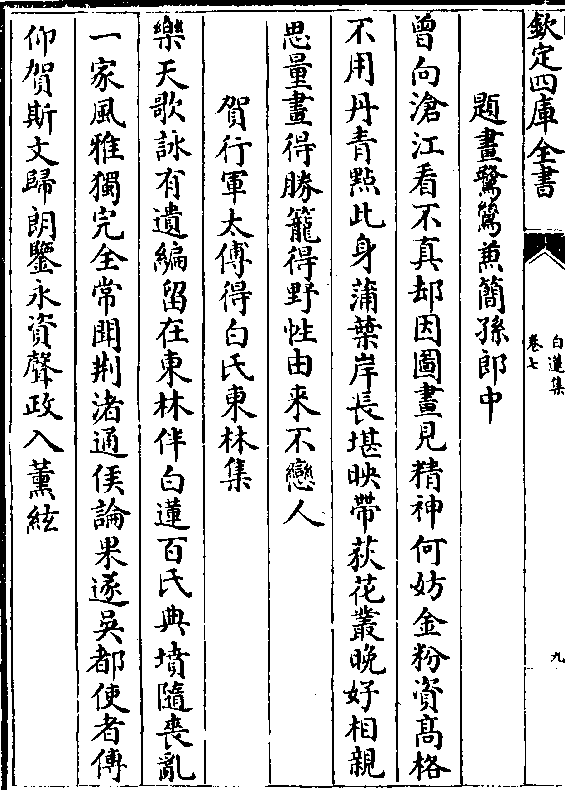 欽定四庫全書
白蓮集
卷七
九
題畫鷺鷥兼簡孫郎中
曾向滄江看不真却因圖畫見精神何妨金粉資高格
不用丹青點此身蒲葉岸長堪映帶荻花叢晚好相親
思量畫得勝籠得野性由來不戀人
賀行軍太傅得白氏東林集
樂天歌詠有遺編留在東林伴白蓮百氏典墳隨喪亂
一家風雅獨完全常聞荆渚通侯論果遂吳都使者傳
仰賀斯文歸朗鑒永資聲政入薰絃